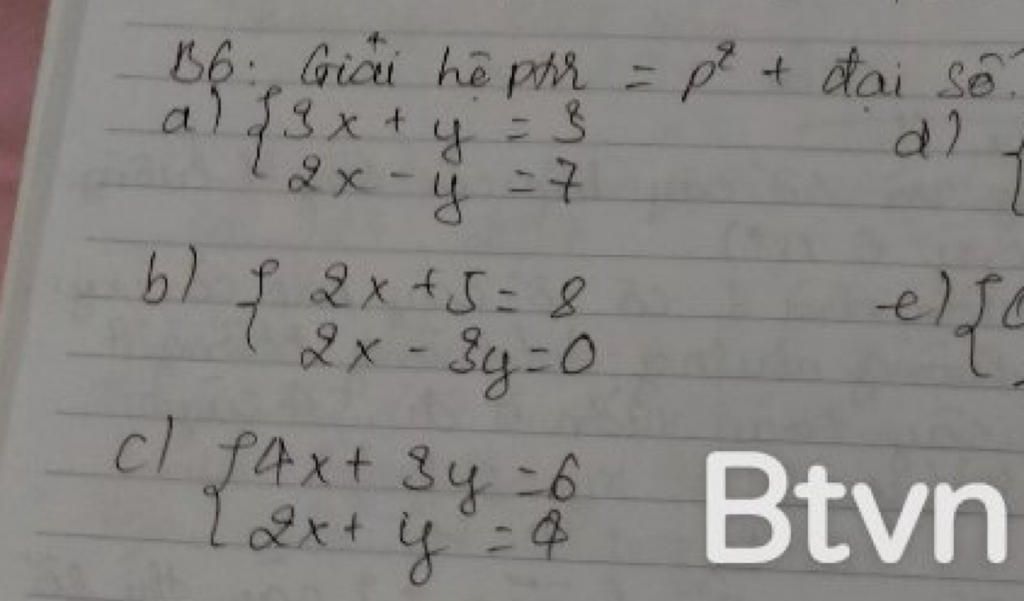 B6: Giải hệ ptr = p² + đại số.
a) { 3x + y = 3
2x - y = 7
d) {
b) { 2x + 5 = 8
2x - 3y = 0
e) {
c) { 4x + 3y = 6
2x + y = 4
Btvn